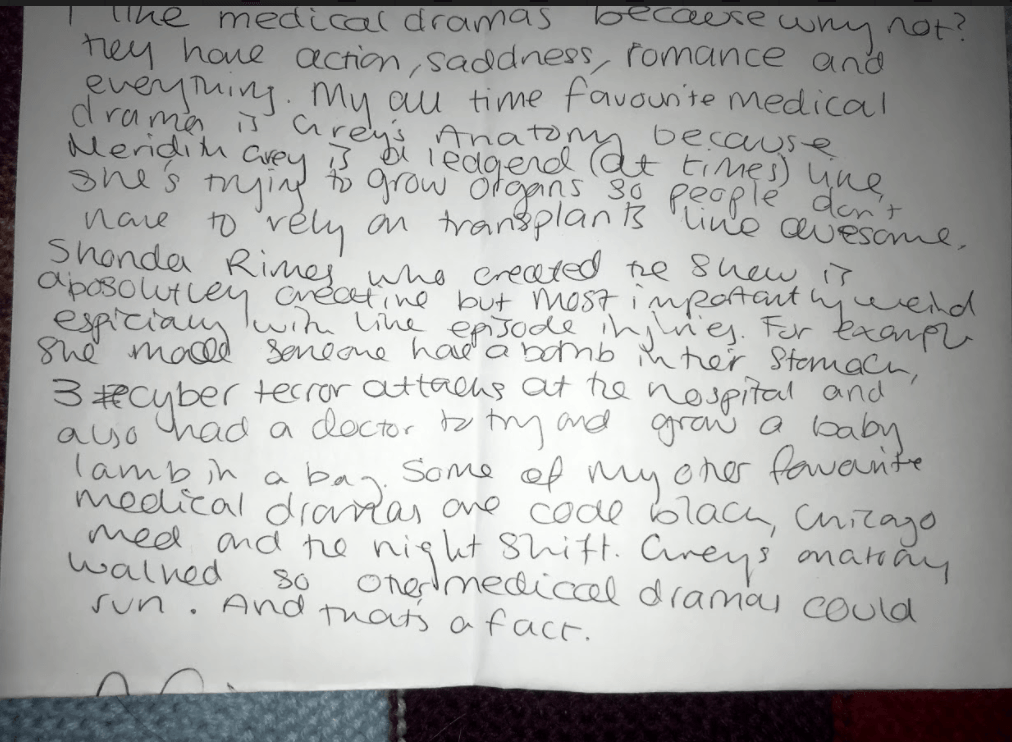 I like medical dramas because why not?
they have action, saddness, romance and
everything. My all time favourite medical
drama is Grey's Anatomy because
Meridith Grey is a ledgend (at times) like
she's trying to grow organs so people don't
have to rely on transplants like awesome.
Shonda Rimes who created the show is
absolutley creative but most importantly weird
espicially with like episode injuries. For exampl
she made someone had a bomb in her stomach,
3 cyber terror attacks at the hospital and
also had a doctor to try and grow a baby
lamb in a bag. Some of my other favourite
medical dramas are code black, Chicago
med and the night Shift. Grey's anatomy
walked so other medical dramas could
run. And that's a fact.